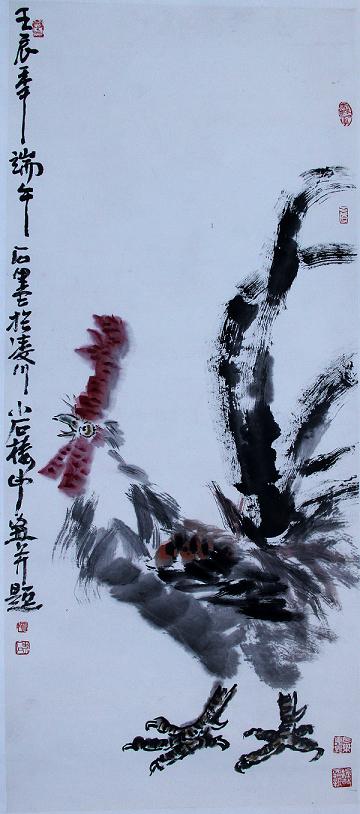 壬辰年端午石墨於凌川小石楼中写并题